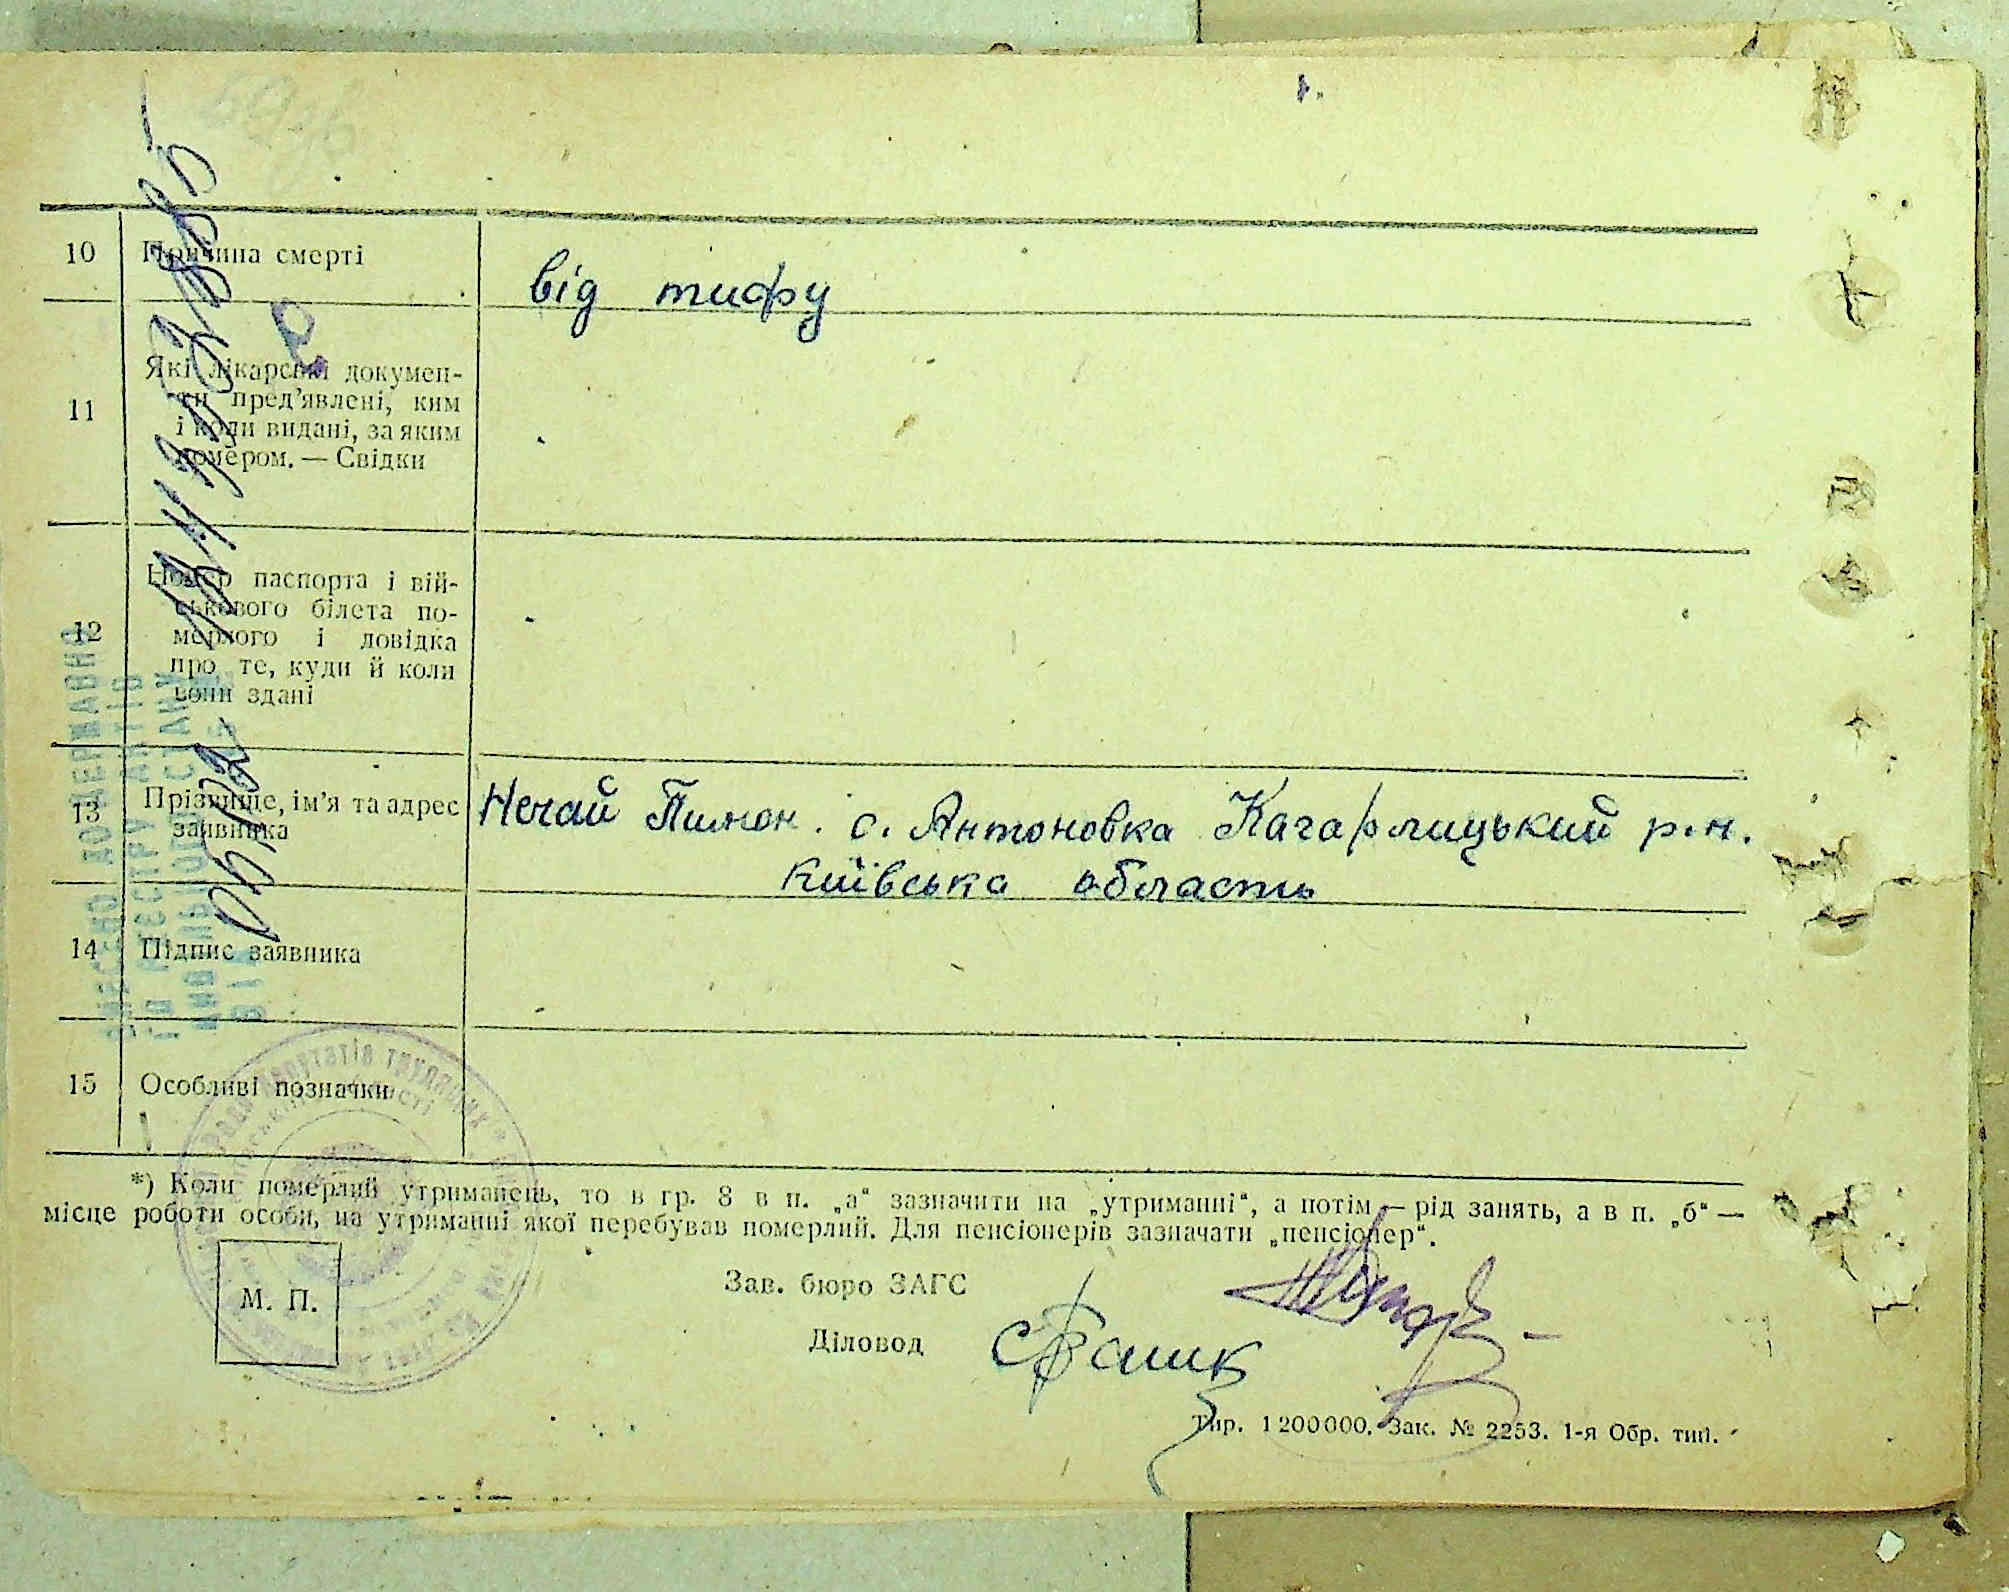 10 Причина смерті від тифу
11 Які лікарські докумен-
ти пред'явлені, ким
і коли видані, за яким
номером. — Свідки
12 Номер паспорта і вій-
ськового білета по-
мерлого і довідка
про те, куди й коли
вони здані
13 Прізвище, ім'я та адрес Нечай Пимон. с. Антоновка Кагарлицький р.н.
заявника Київська область
14 Підпис заявника
15 Особливі позначки
*) Коли померлий утриманець, то в гр. 8 в п. „а“ зазначити на „утриманні“, а потім — рід занять, а в п. „б“ —
місце роботи особи, на утриманні якої перебував померлий. Для пенсіонерів зазначати „пенсіонер“.
М. П.
Зав. бюро ЗАГС
Діловод
Тир. 1200000. Зак. № 2253. 1-я Обр. тип.